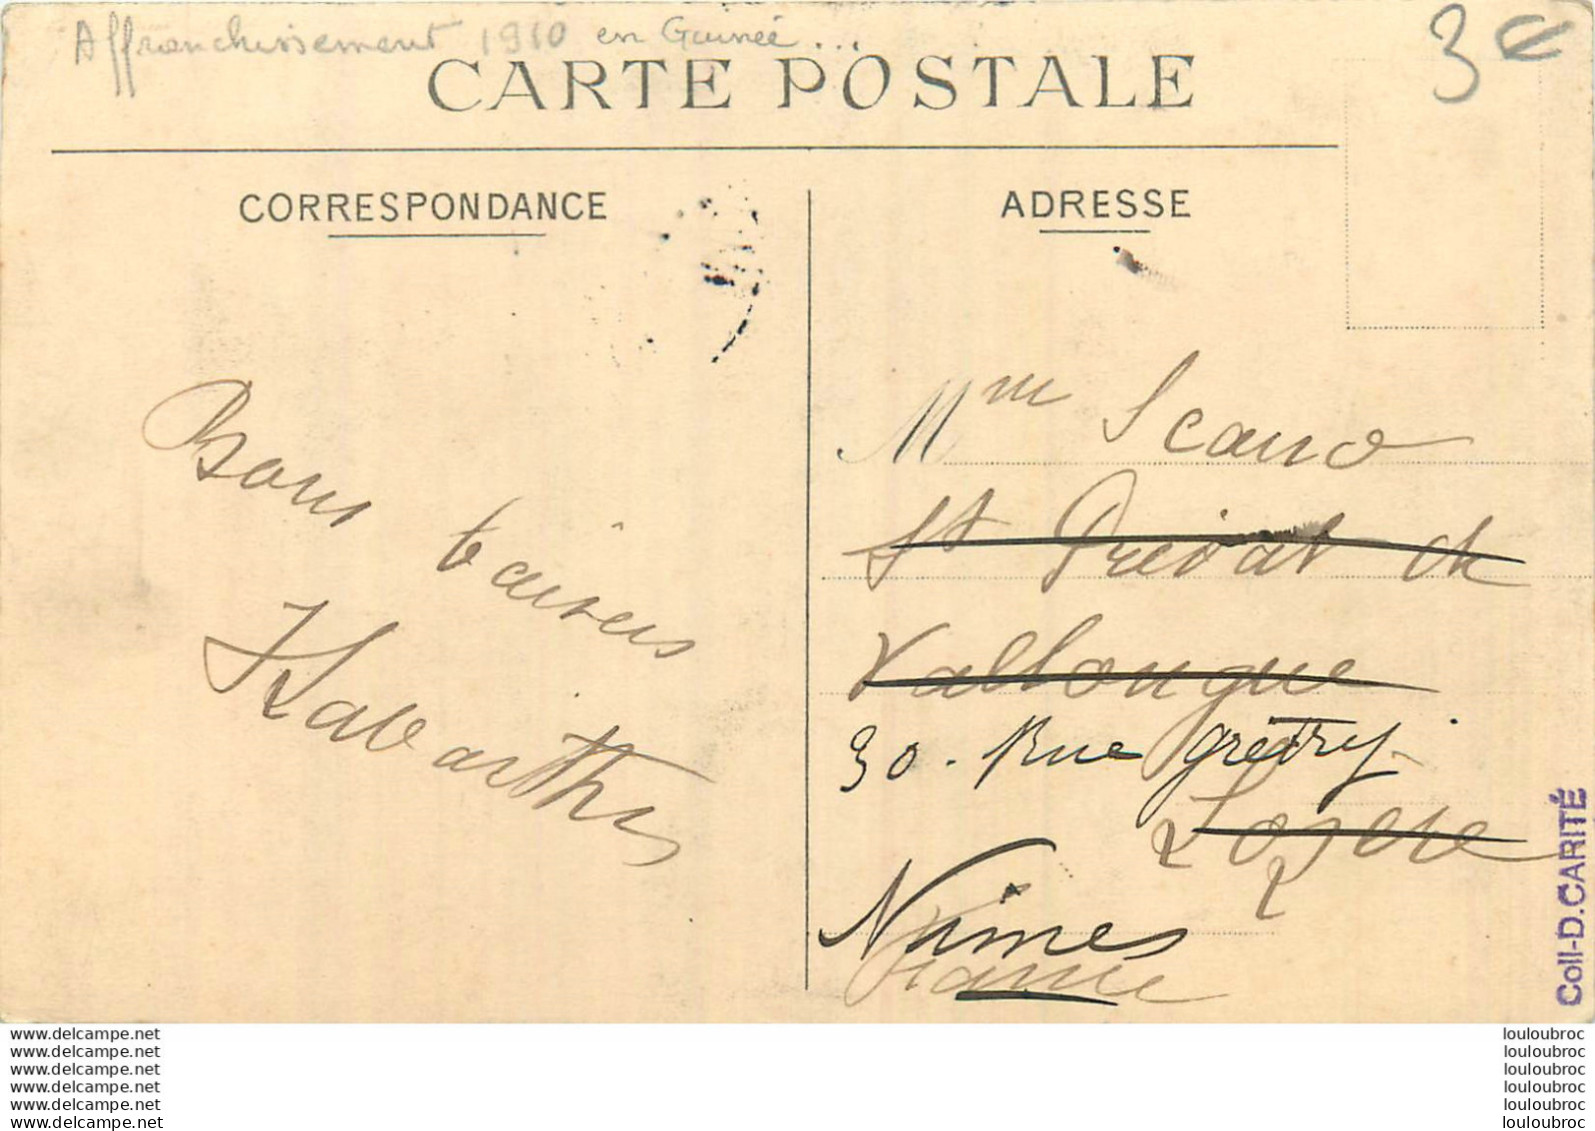 Affranchissement 1910 en Guinée...
3€
CARTE POSTALE
CORRESPONDANCE
ADRESSE
Bons baisers
HLabarthe
Mme Scano
St Privat de
Vallongue
30. Rue Grétry.
Lozere
Nîmes
France
Coll-D.CARITÉ
www.delcampe.net
www.delcampe.net
www.delcampe.net
www.delcampe.net
www.delcampe.net
www.delcampe.net
louloubroc
louloubroc
louloubroc
louloubroc
louloubroc
louloubroc